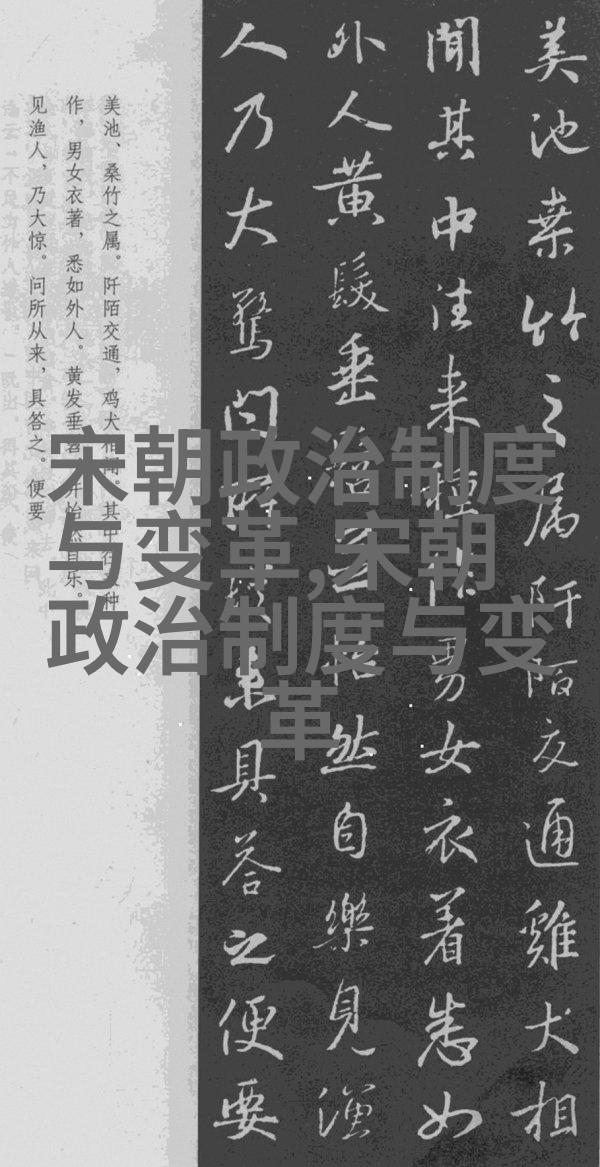 美池桒竹之属阡陌交通雞犬相
聞其中往来種作男女衣着悉如
外人黄髮垂髫並怡然自樂見漁
人乃大驚問所從来具答之便要
美池、桑竹之属。阡陌交通，鸡犬相闻。其中往来种
作，男女衣著，悉如外人。黄发垂髫，并怡然自乐。
见渔人，乃大惊。问所从来，具答之。便要
宋朝政治制度
与变革,宋朝
政治制度与变
革